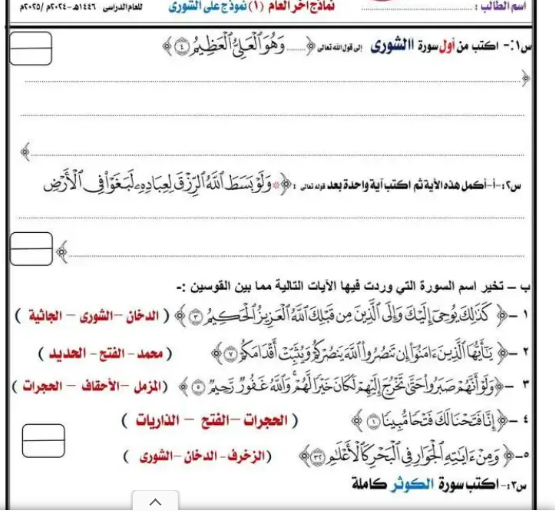 اسم الطالب : ............ نماذج آخر العام (١) نموذج على الشورى للعام الدراسى ١٤٤٦هـ-٢٠٢٤م/٢٠٢٥م
س١:- اكتب من أول سورة االشورى إلى قول الله تعالى ﴿........ وَهُوَ ٱلْعَلِىُّ ٱلْعَظِيمُ (٤) ﴾
س٢:-أ-أكمل هذه الأية ثم اكتب آية واحدة بعد قوله تعالى : ﴿ * وَلَوْ بَسَطَ ٱللَّهُ ٱلرِّزْقَ لِعِبَادِهِۦ لَبَغَوْا۟ فِى ٱلْأَرْضِ
﴾
ب – تخير اسم السورة التي وردت فيها الآيات التالية مما بين القوسين :-
١ -﴿ كَذَٰلِكَ يُوحِىٓ إِلَيْكَ وَإِلَى ٱلَّذِينَ مِن قَبْلِكَ ٱللَّهُ ٱلْعَزِيزُ ٱلْحَكِيمُ (٣) ﴾ ( الدخان –الشورى – الجاثية )
٢ -﴿ يَـٰٓأَيُّهَا ٱلَّذِينَ ءَامَنُوٓا۟ إِن تَنصُرُوا۟ ٱللَّهَ يَنصُرْكُمْ وَيُثَبِّتْ أَقْدَامَكُمْ (٧) ﴾ ( محمد- الفتح – الحديد )
٣ -﴿ وَلَوْ أَنَّهُمْ صَبَرُوا۟ حَتَّىٰ تَخْرُجَ إِلَيْهِمْ لَكَانَ خَيْرًا لَّهُمْ وَٱللَّهُ غَفُورٌ رَّحِيمٌ (٥) ﴾ (المزمل –الأحقاف – الحجرات )
٤ -﴿ إِنَّا فَتَحْنَا لَكَ فَتْحًا مُّبِينًا (١) ﴾ ( الحجرات –الفتح – الذاريات )
٥-﴿ وَمِنْ ءَايَـٰتِهِ ٱلْجَوَارِ فِى ٱلْبَحْرِ كَٱلْأَعْلَـٰمِ (٣٢) ﴾ (الزخرف- الدخان –الشورى )
س٣:- اكتب سورة الكوثر كاملة